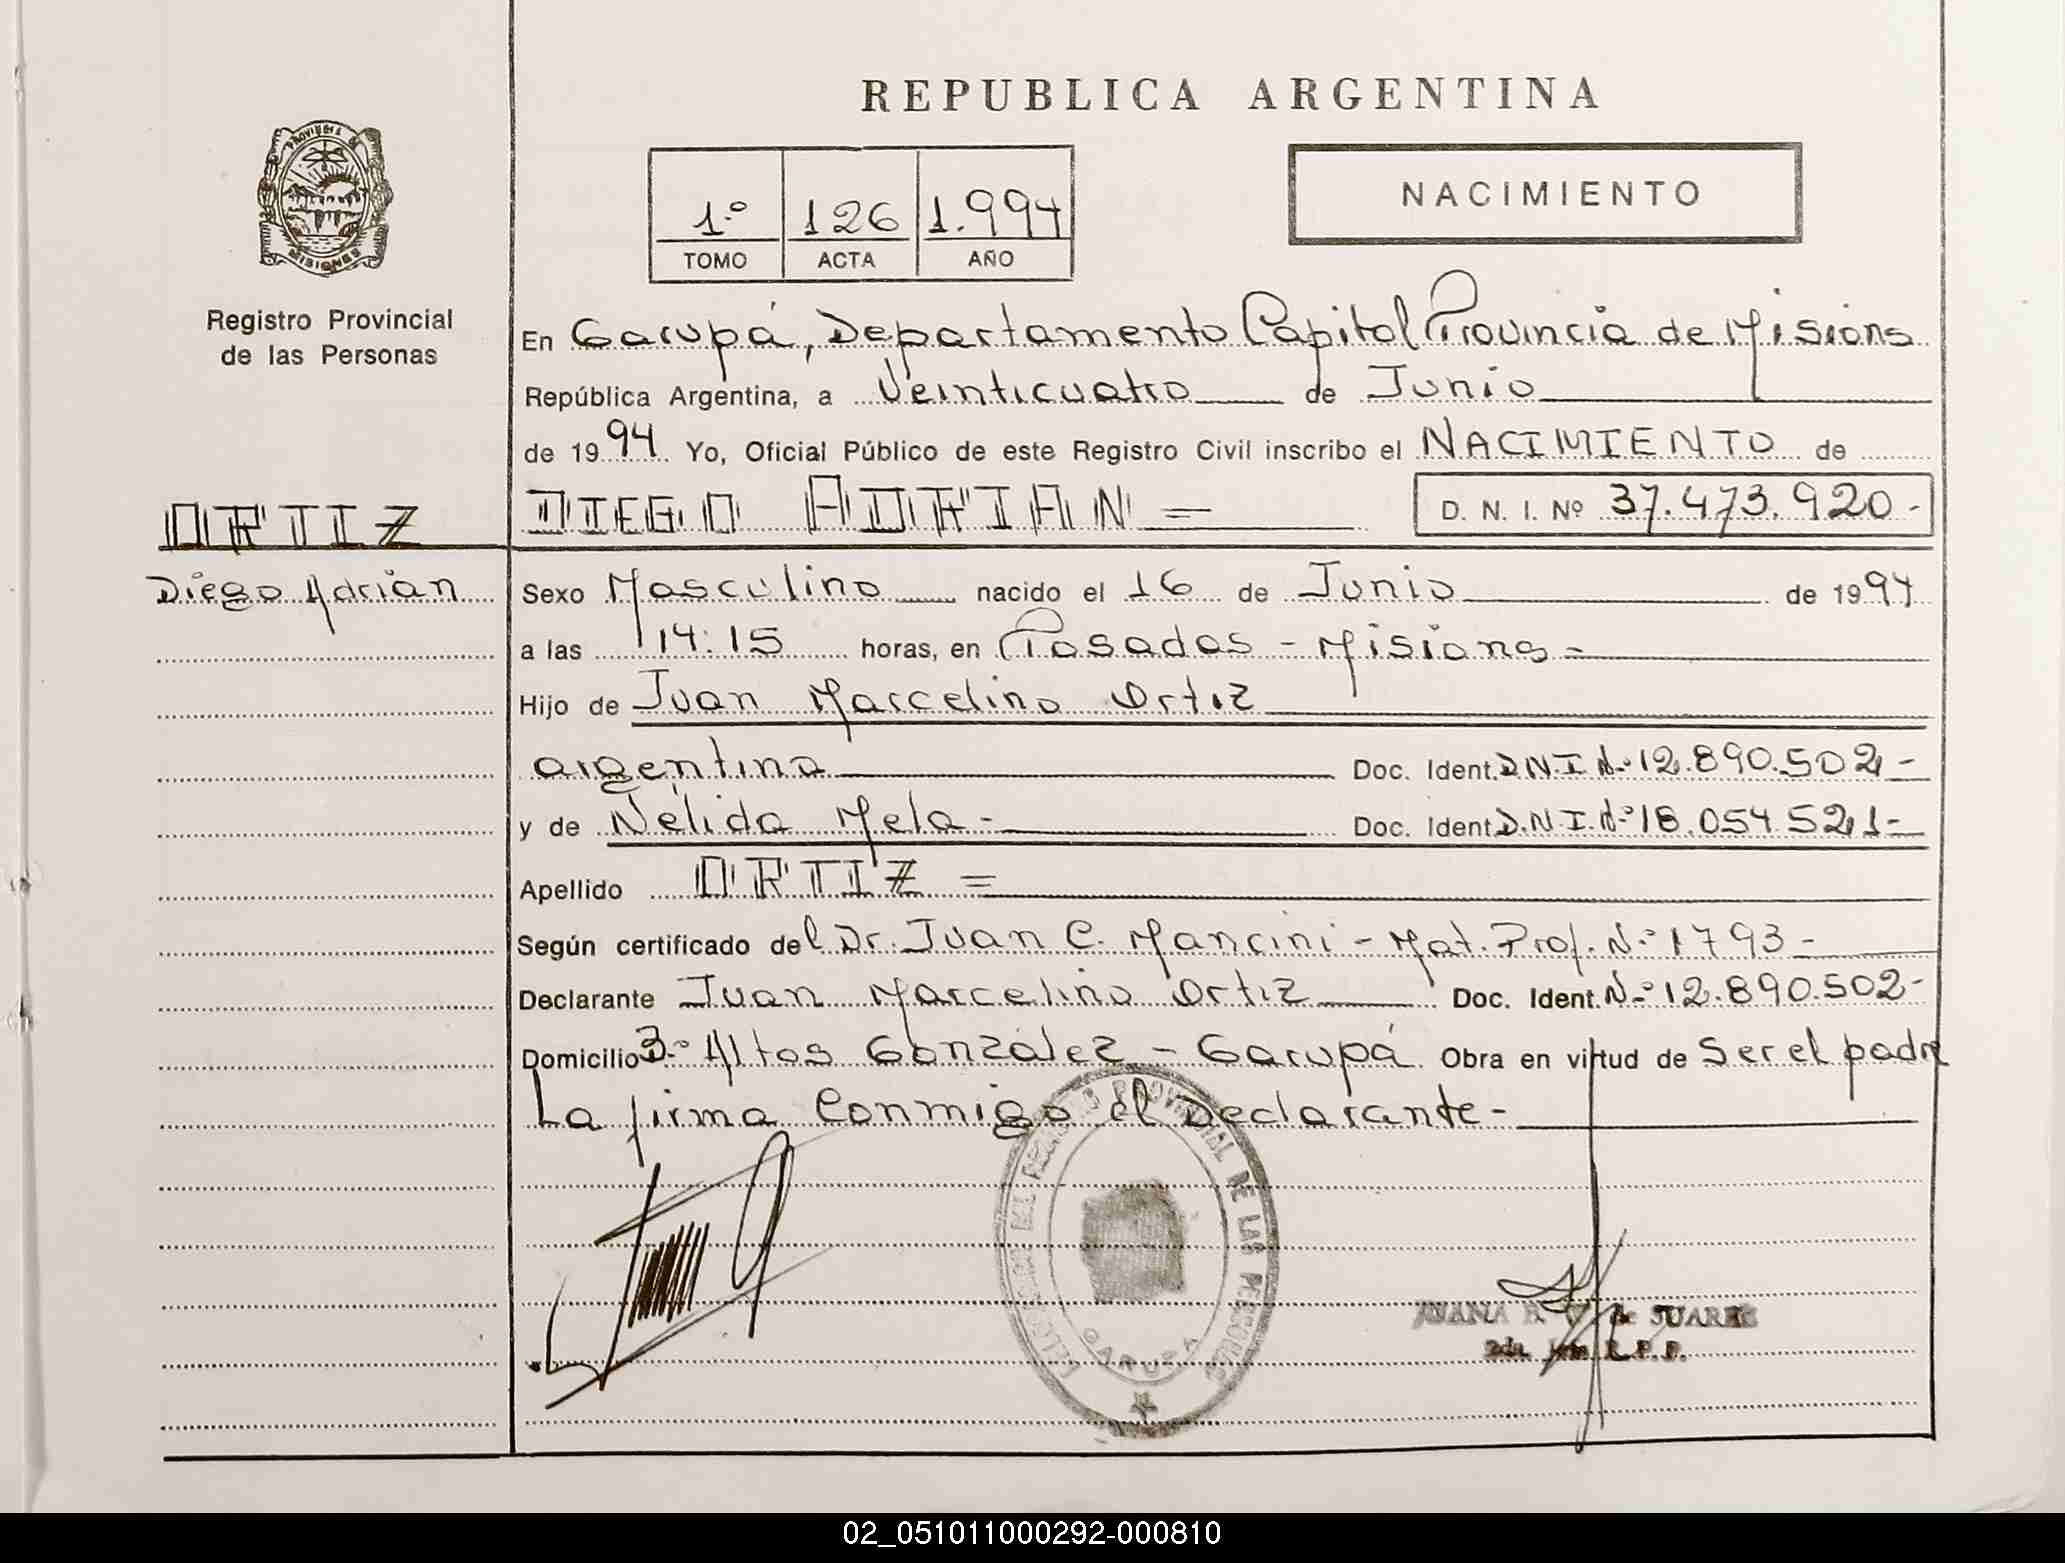 REPUBLICA ARGENTINA
PROVINCIA DE
MISIONES
Registro Provincial
de las Personas
1.º 126 1.994
TOMO ACTA AÑO
NACIMIENTO
En Garupá, Departamento Capital Provincia de Misions
República Argentina, a Veinticuatro de Junio
de 1994 Yo, Oficial Público de este Registro Civil inscribo el NACIMIENTO de
ORTIZ
Diego Adrian
DIEGO ADRIAN = D. N. I. Nº 37.473.920-
Sexo Masculino nacido el 16 de Junio de 1994
a las 14:15 horas, en Posadas - Misions =
Hijo de Juan Marcelino Ortiz
argentino Doc. Ident. D.N.I. Nº 12.890.502-
y de Nélida Mela - Doc. Ident. D.N.I. Nº 18.054.521-
Apellido ORTIZ =
Según certificado del Dr. Juan C. Mancini - Mat. Prof. N.º 1793-
Declarante Juan Marcelino Ortiz Doc. Ident. N.º 12.890.502-
Domicilio 3.º Altos González - Garupá Obra en virtud de Ser el padre
La firma Conmigo el Declarante-
DEL REGISTRO PROVINCIAL DE LAS PERSONAS
GARUPA
JUANA de JUAREZ
2da. R. P. P.
02_051011000292-000810